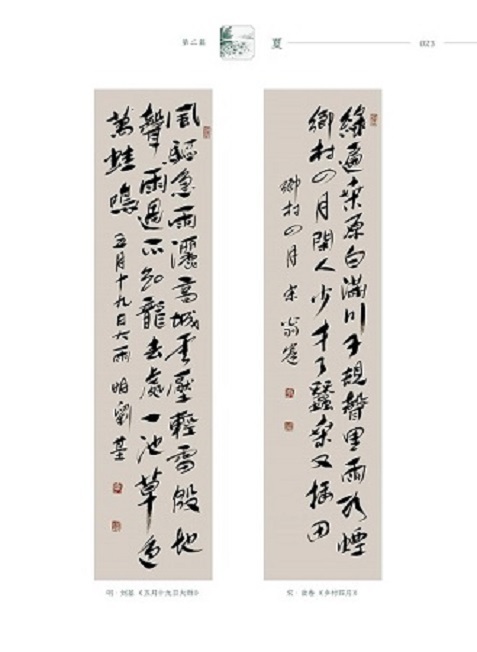 第二篇
夏
023
綠遍桑原白滿川子規聲里雨如煙
鄉村四月閒人少才了蠶桑又插田
鄉村四月 宋 翁卷
風驅急雨灑高城雲壓輕雷殷地
聲雨過不知龍去處一池草色
萬蛙鳴 五月十九日大雨 明 劉基
明·刘基《五月十九日大雨》
宋·翁卷《乡村四月》